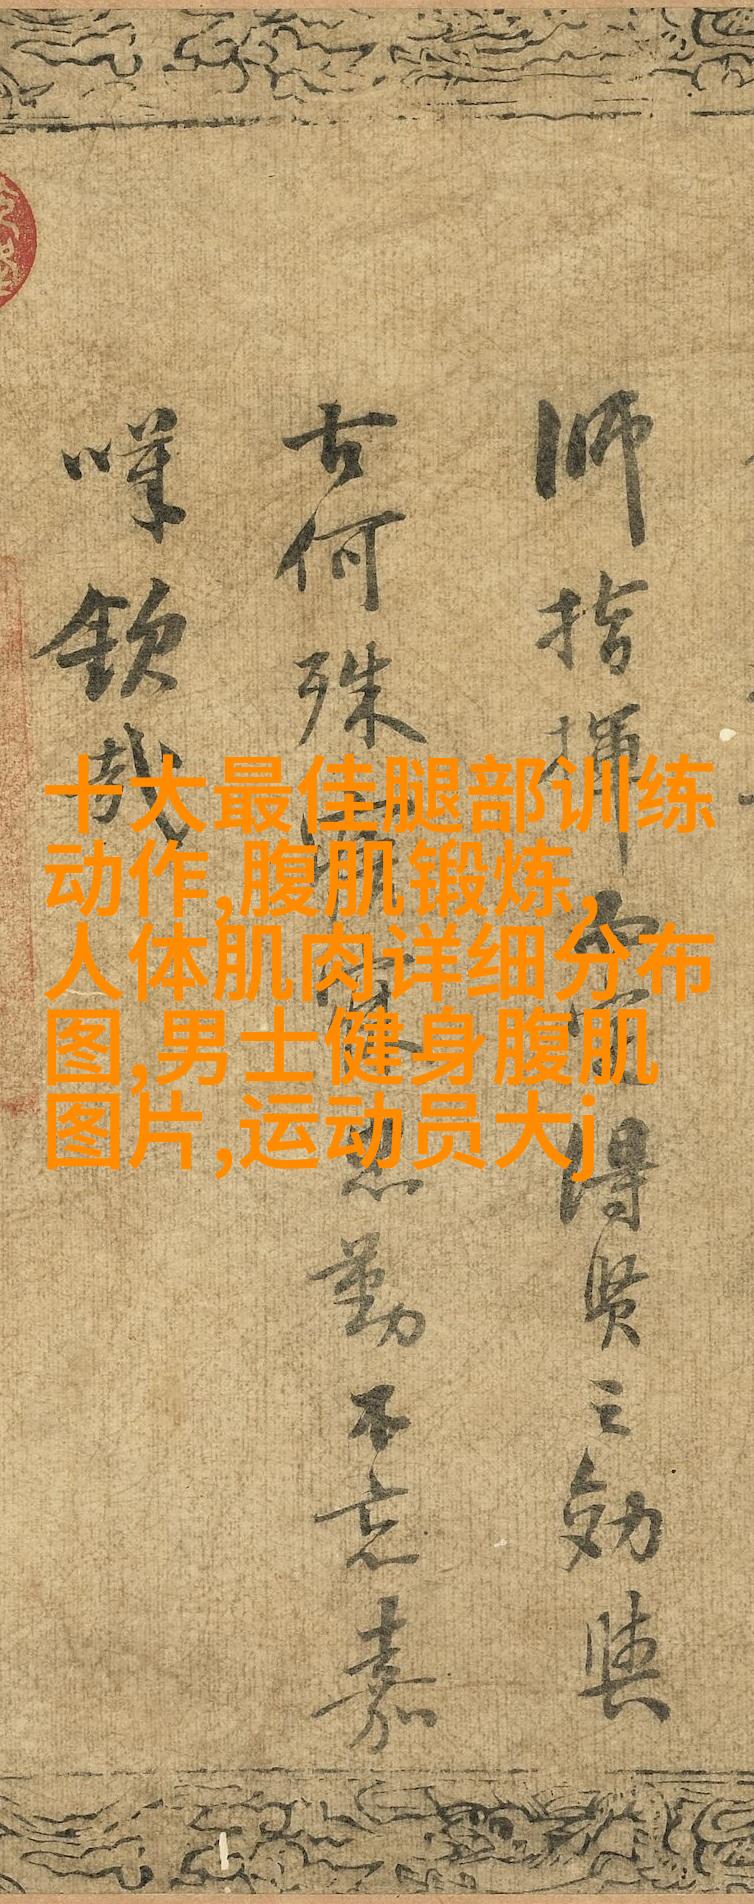 師指揮得賢之効與
古何殊寐勤不忘嘉
嘆欽哉
十大最佳腿部训练
动作,腹肌锻炼,
人体肌肉详细分布
图,男士健身腹肌
图片,运动员大j